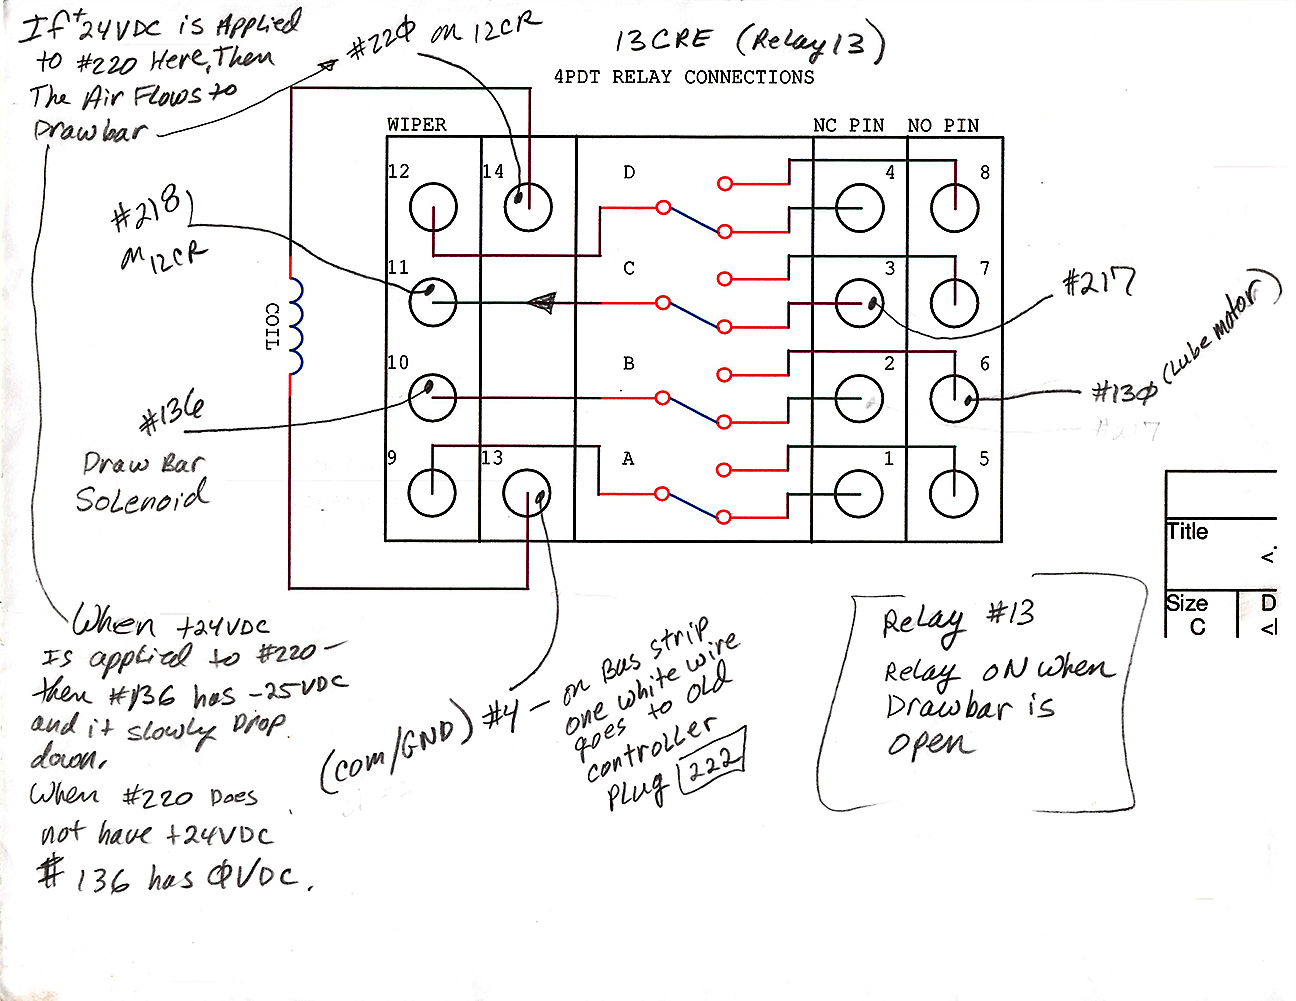 If +24VDC is Applied
to #220 Here, Then
The Air Flows to
Drawbar
#22Ø on 12CR
13CRE (Relay13)
4PDT RELAY CONNECTIONS
WIPER
NC PIN
NO PIN
12
14
D
4
8
#218
on 12CR
11
C
3
7
#217
COIL
10
B
2
6
#13Ø (Lube motor)
#217
#136
Draw Bar
Solenoid
9
13
A
1
5
Title
<
Size
D
C
<
When +24VDC
Is applied to #220 -
then #136 has -25VDC
and it slowly Drop
down.
When #220 Does
not have +24VDC
# 136 has ØVDC.
(com/GND) #4 - on Bus strip
one white wire
goes to old
controller
plug 222
Relay #13
Relay ON when
Drawbar is
open